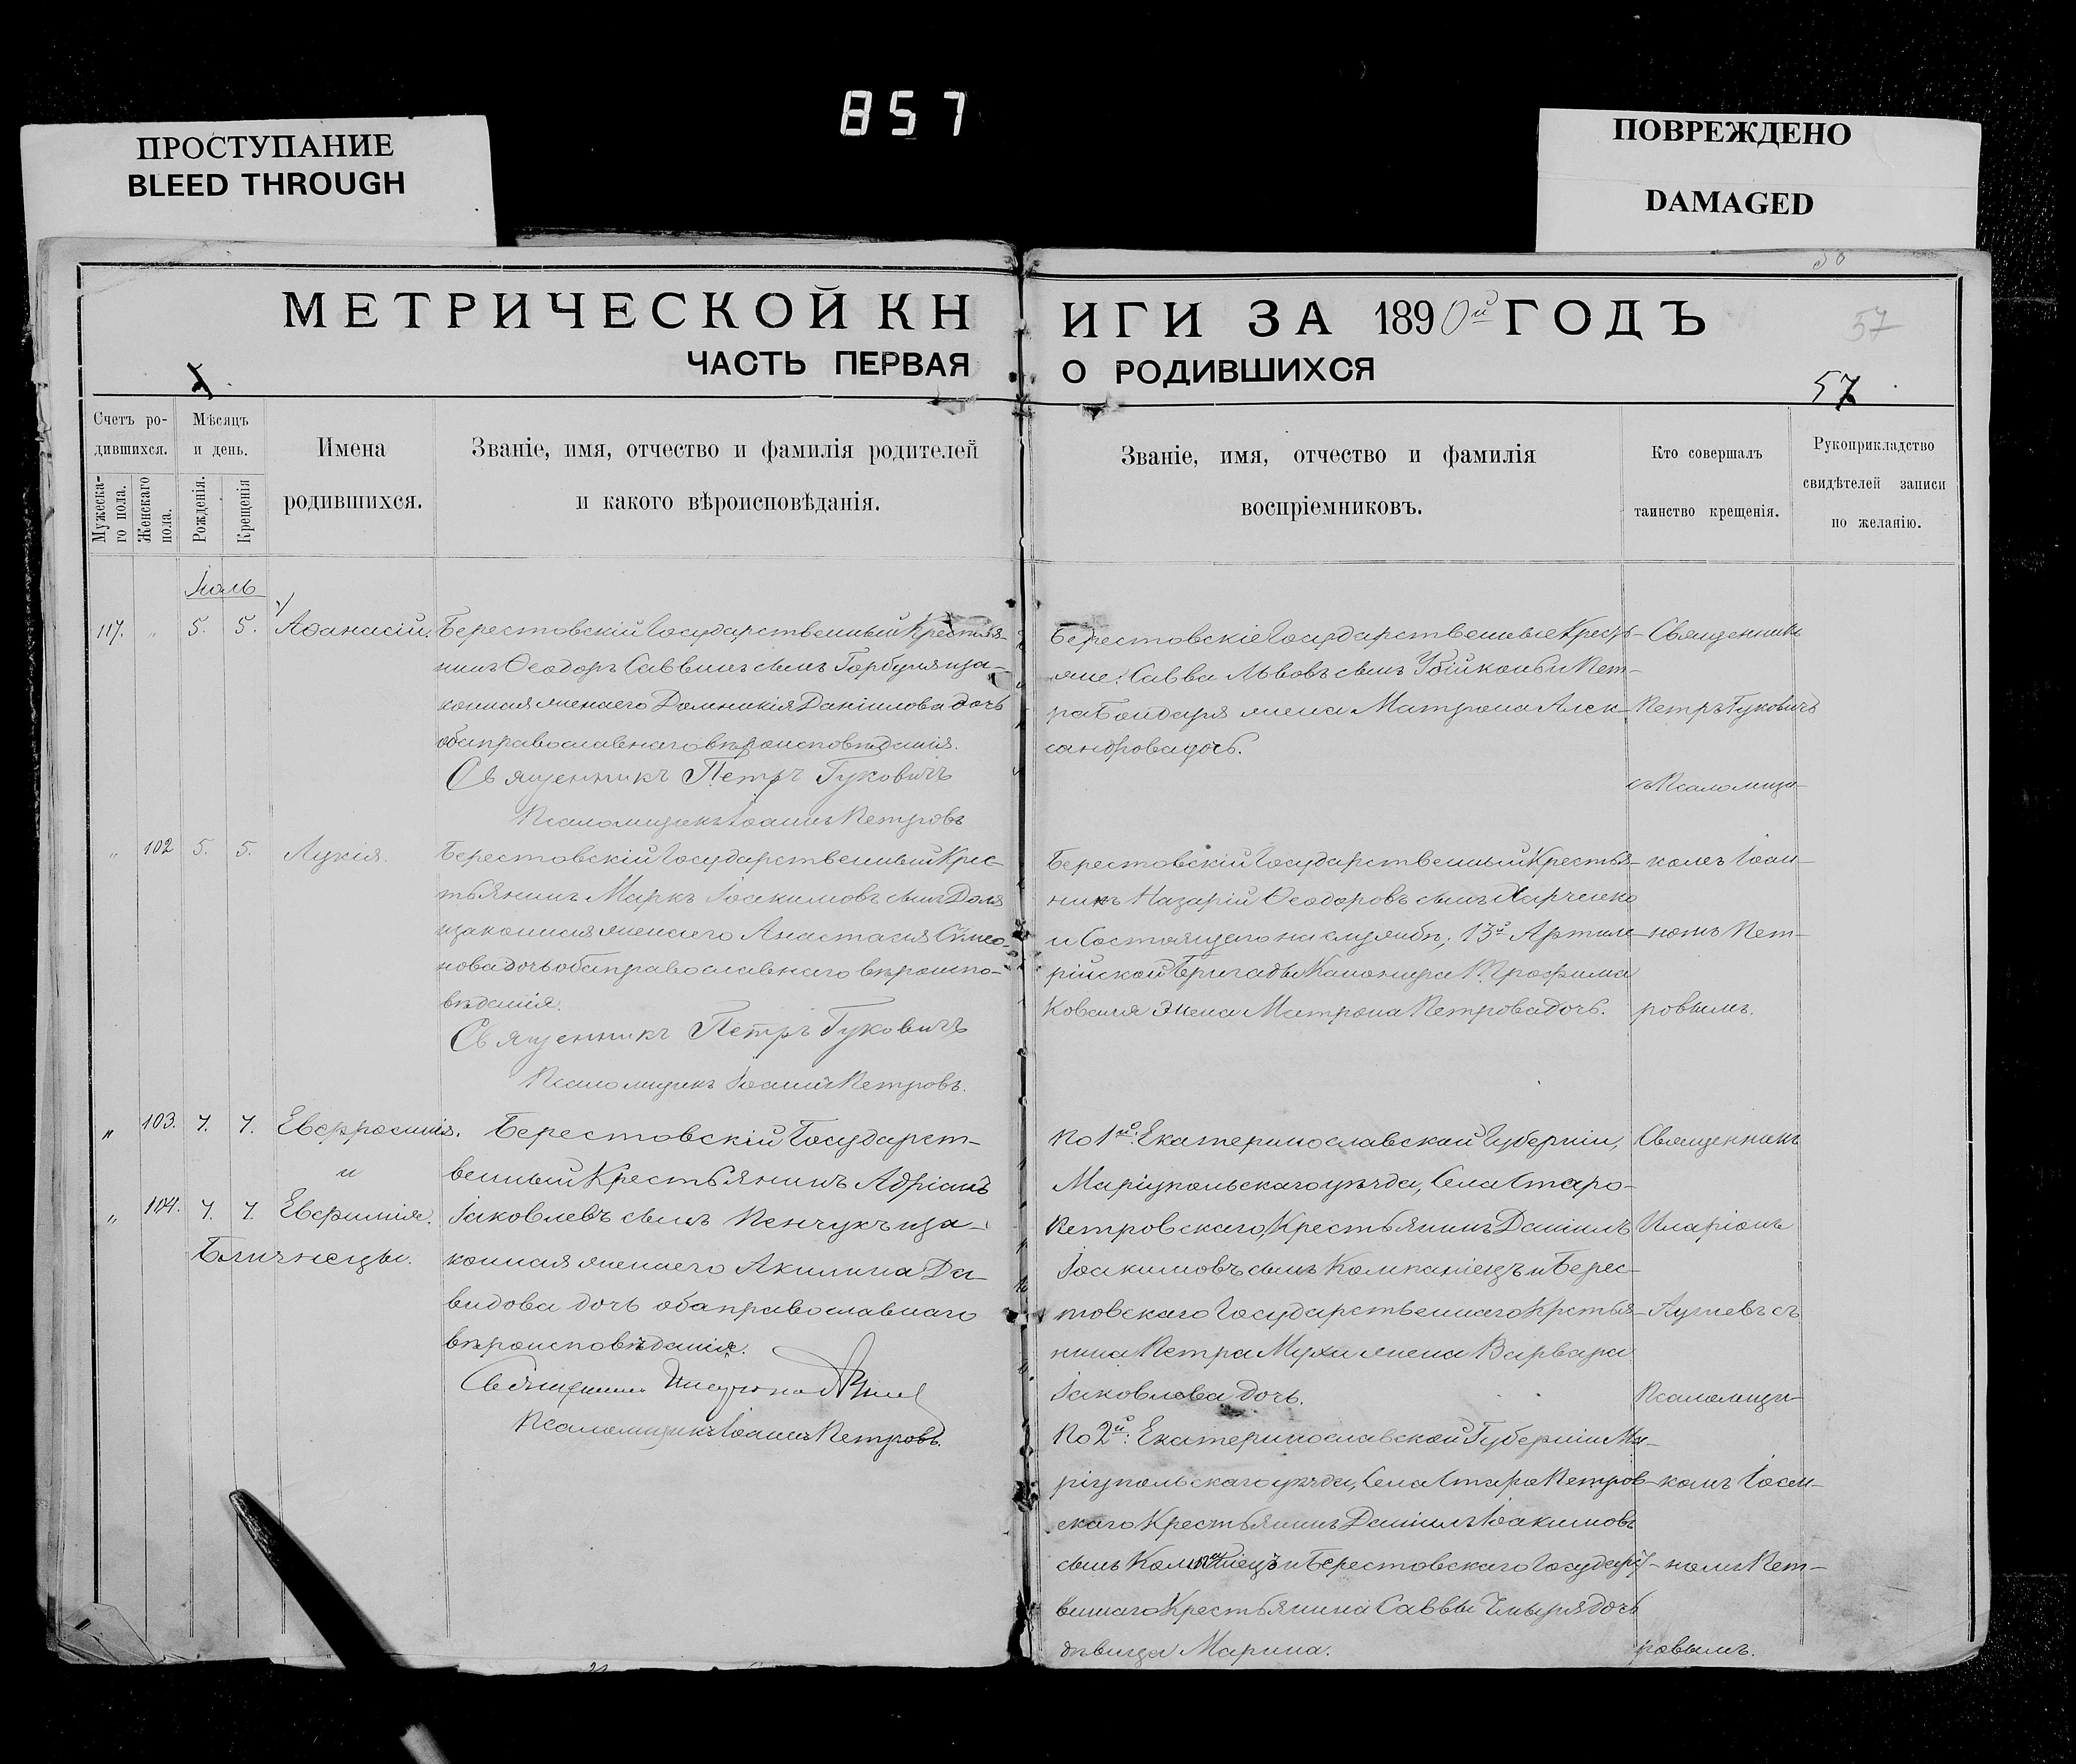 857
ПРОСТУПАНИЕ
BLEED THROUGH
ПОВРЕЖДЕНО
DAMAGED
МЕТРИЧЕСКОЙ КН
ИГИ ЗА 1890й ГОДЪ
57
ЧАСТЬ ПЕРВАЯ
О РОДИВШИХСЯ
57
Счетъ ро-
дившихся.
Мужеска-
го пола.
Женскаго
пола.
Мѣсяцъ
и день.
Рожденія.
Крещенія
Имена
родившихся.
Званіе, имя, отчество и фамилія родителей
и какого вѣроисповѣданія.
Званіе, имя, отчество и фамилія
воспріемниковъ.
Кто совершалъ
таинство крещенія.
Рукоприкладство
свидѣтелей записи
по желанію.
Іюль
117. " 5. 5. Аѳанасій.
Берестовскій Государственный Крестья-
нинъ Ѳеодоръ Саввинъ сынъ Горбуля и за-
конная жена его Домникія Даніилова дочь
оба православнаго вѣроисповѣданія.
Священникъ Петръ Гуковичъ
Псаломщикъ Іоаннъ Петровъ
Берестовскіе Государственные Кресть-
яне: Савва Львовъ сынъ Убійконь и Пет-
ра Бондаря жена Матрона Алек-
сандрова дочь.
Священникъ
Петръ Гуковичъ
съ Псаломщи-
" 102 5. 5. Лукія.
Берестовскій Государственный Крес-
тьянинъ Маркъ Іоакимовъ сынъ Доля
и законная жена его Анастасія Сѵмео-
нова дочь оба православнаго вѣроиспо-
вѣданія.
Священникъ Петръ Гуковичъ
Псаломщикъ Іоаннъ Петровъ.
Берестовскій Государственный Крестья-
нинъ Назарій Ѳеодоровъ сынъ Харченко
и Состоящаго на службѣ: 13й Артиле-
рійской Бригады Канонира Трофима
Коваля жена Матрона Петрова дочь.
комъ Іоан-
номъ Пет-
ровымъ.
" 103. 7. 7. Евфросинія.
и
" 104. 7. 7. Евфимія.
Близнецы.
Берестовскій Государст-
венный Крестьянинъ Адріанъ
Іаковлевъ сынъ Пенчукъ и за-
конная жена его Акилина Да-
видова дочь оба православнаго
вѣроисповѣданія.
Псаломщикъ Іоаннъ Петровъ.
По 1й: Екатеринославской Губерніи,
Маріупольскаго уѣзда, Села Старо-
Петровскаго, Крестьянинъ Даніилъ
Іоакимовъ сынъ Компаніецъ и Берес-
товскаго Государственнаго Крстья-
нина Петра Мухи жена Варвара
Іаковлева дочь.
По 2й: Екатеринославской Губерніи Ма-
ріупольскаго уѣзда, Села Старо Петров-
скаго Крестьянинъ Даніилъ Іоакимовъ
сынъ Компаніецъ и Берестовскаго Государст-
веннаго Крестьянина Саввы дочь
дѣвица Марина.
Священникъ
Иларіонъ
съ
Псаломщи-
комъ Іоан-
номъ Пет-
ровымъ.